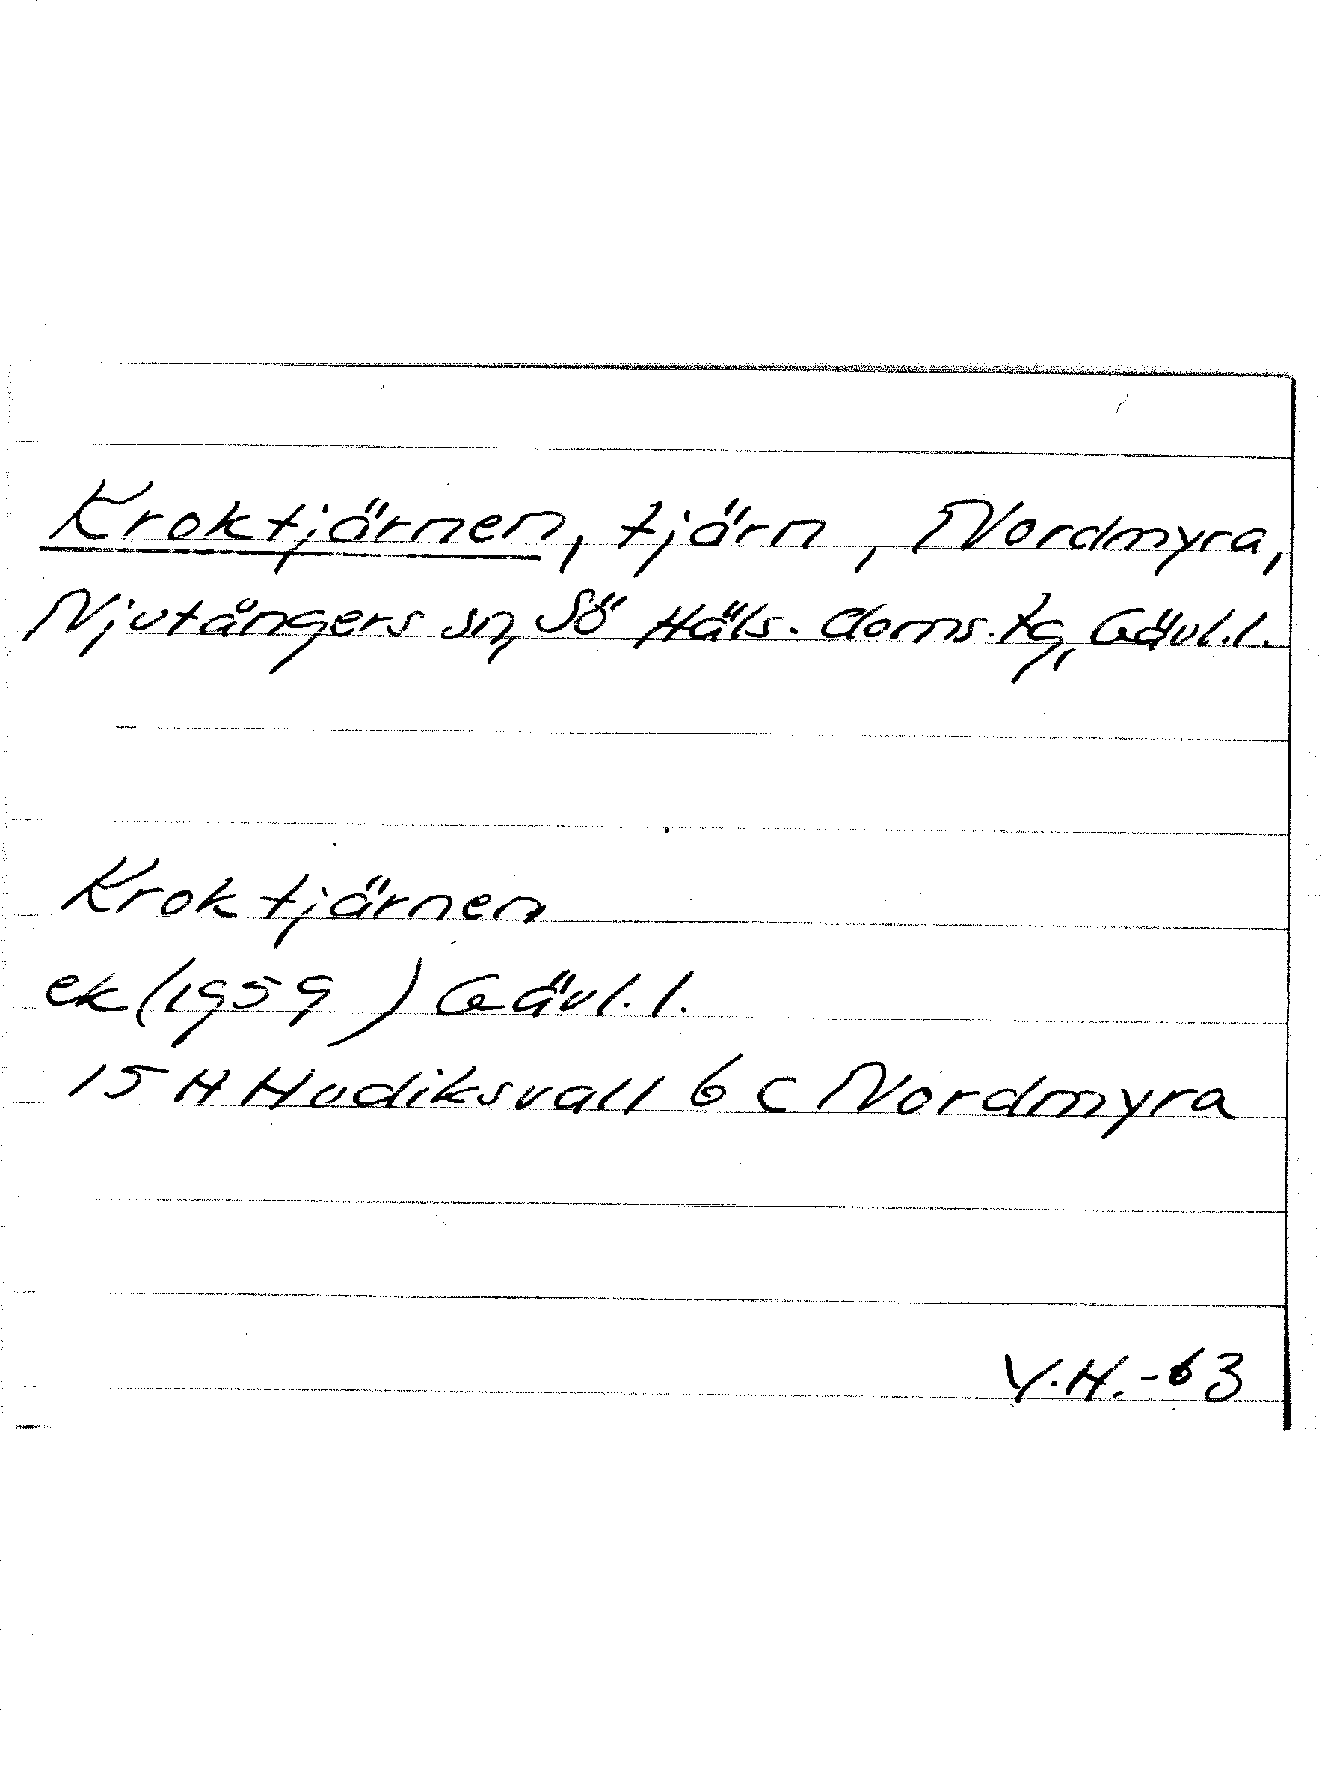 Kroktjärnen, tjärn, Nordmyra,
Njutångers sn, Sö Häls. doms. tg, Gävl. l.
Kroktjärnen
ek (1959) Gävl. l.
15 H Hudiksvall 6 c Nordmyra
Y.H. -63